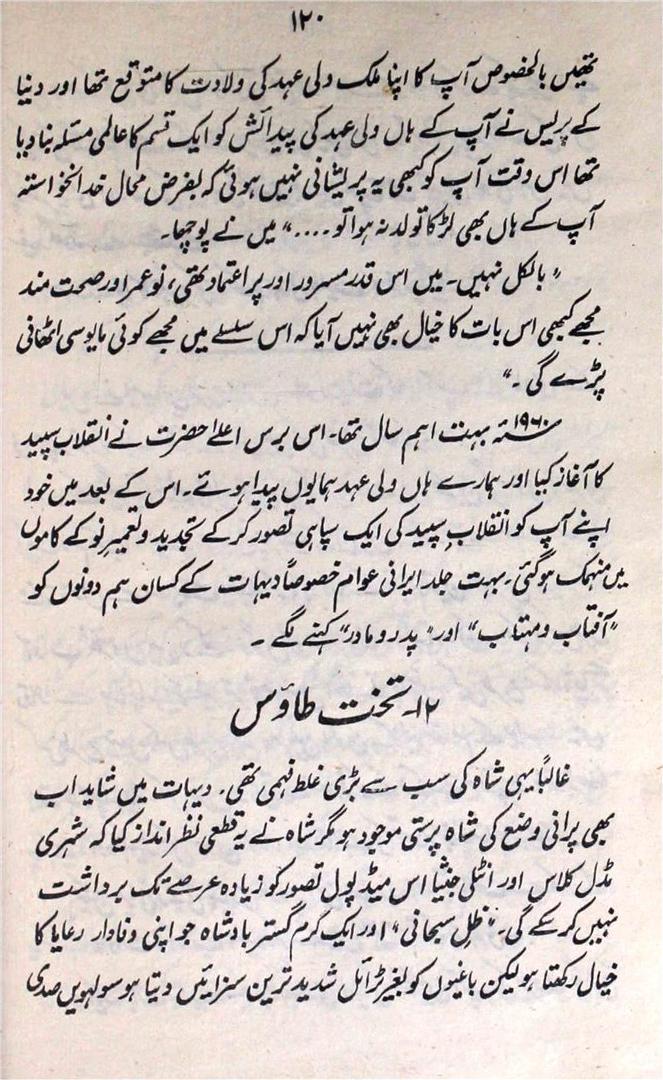 ۱۲۰
تھیں بالخصوص آپ کا اپنا ملک ولی عہد کی ولادت کا متوقع تھا اور دنیا
کے پریس نے آپ کے ہاں ولی عہد کی پیدائش کو ایک قسم کا عالمی مسئلہ بنا دیا
تھا اس وقت آپ کو کبھی یہ پریشانی نہیں ہوئی کہ بفرض محال خدانخواستہ
آپ کے ہاں بھی لڑکا تولد نہ ہوا تو ....“ میں نے پوچھا۔
”بالکل نہیں۔ میں اس قدر مسرور اور پر اعتماد تھی، نوعمر اور صحت مند
مجھے کبھی اس بات کا خیال بھی نہیں آیا کہ اس سلسلے میں مجھے کوئی مایوسی اٹھانی
پڑے گی۔“
۱۹۶۰ء بہت اہم سال تھا۔ اس برس اعلےٰ حضرت نے انقلاب سپید
کا آغاز کیا اور ہمارے ہاں ولی عہد ہمایوں پیدا ہوئے۔ اس کے بعد میں خود
اپنے آپ کو انقلابِ سپید کی ایک سپاہی تصور کر کے تجدید و تعمیرِ نو کے کاموں
میں منہمک ہو گئی۔ بہت جلد ایرانی عوام خصوصاً دیہات کے کسان ہم دونوں کو
”آفتاب و مہتاب“ اور ”پدر و مادر“ کہنے لگے۔
۱۲۔ تختِ طاؤس
غالباً یہی شاہ کی سب سے بڑی غلط فہمی تھی۔ دیہات میں شاید اب
بھی پرانی وضع کی شاہ پرستی موجود ہو مگر شاہ نے یہ قطعی نظر انداز کیا کہ شہری
مڈل کلاس اور انٹلی جنٹسیا اس میڈیول تصور کو زیادہ عرصے تک برداشت
نہیں کر سکے گی۔ ”ظلِ سبحانی“ اور ایک کرم گستر بادشاہ جو اپنی وفادار رعایا کا
خیال رکھتا ہو لیکن باغیوں کو بغیر ٹرائل شدید ترین سزائیں دیتا ہو سولہویں صدی